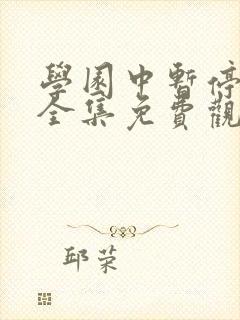 學園中暫停
全集免費觀
邱荣